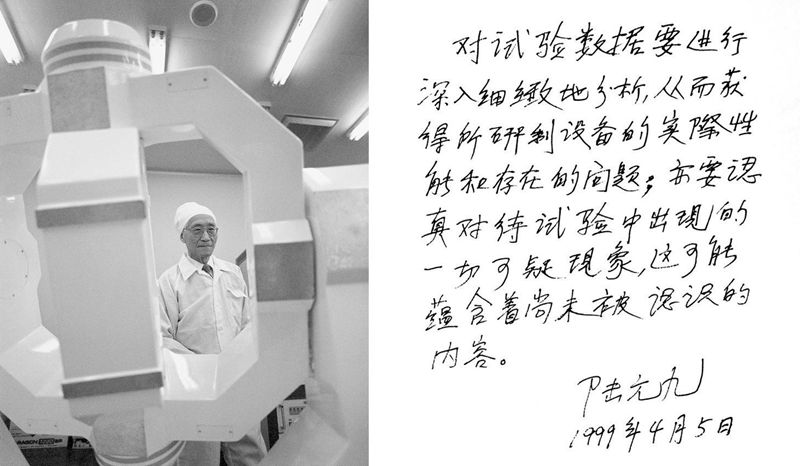 对试验数据要进行
深入细緻地分析,从而获
得所研制设备的实際性
能和存在的问题;亦要認
真对待试验中出現的
一切可疑現象,这可能
蕴含着尚未被認识的
内容。
陆元九
1999年4月5日